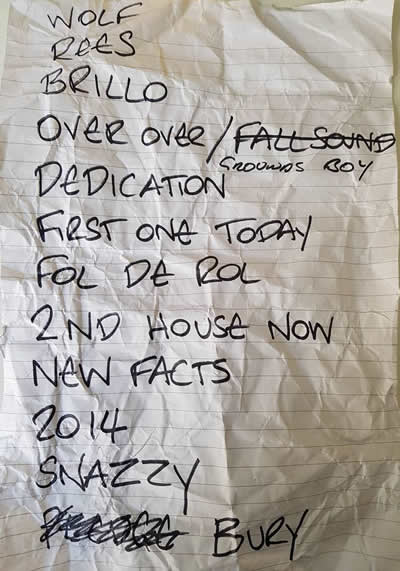 WOLF
REES
BRILLO
OVER OVER / FALL SOUND
GROUNDS BOY
DEDICATION
FIRST ONE TODAY
FOL DE ROL
2ND HOUSE NOW
NEW FACTS
2014
SNAZZY
BURY